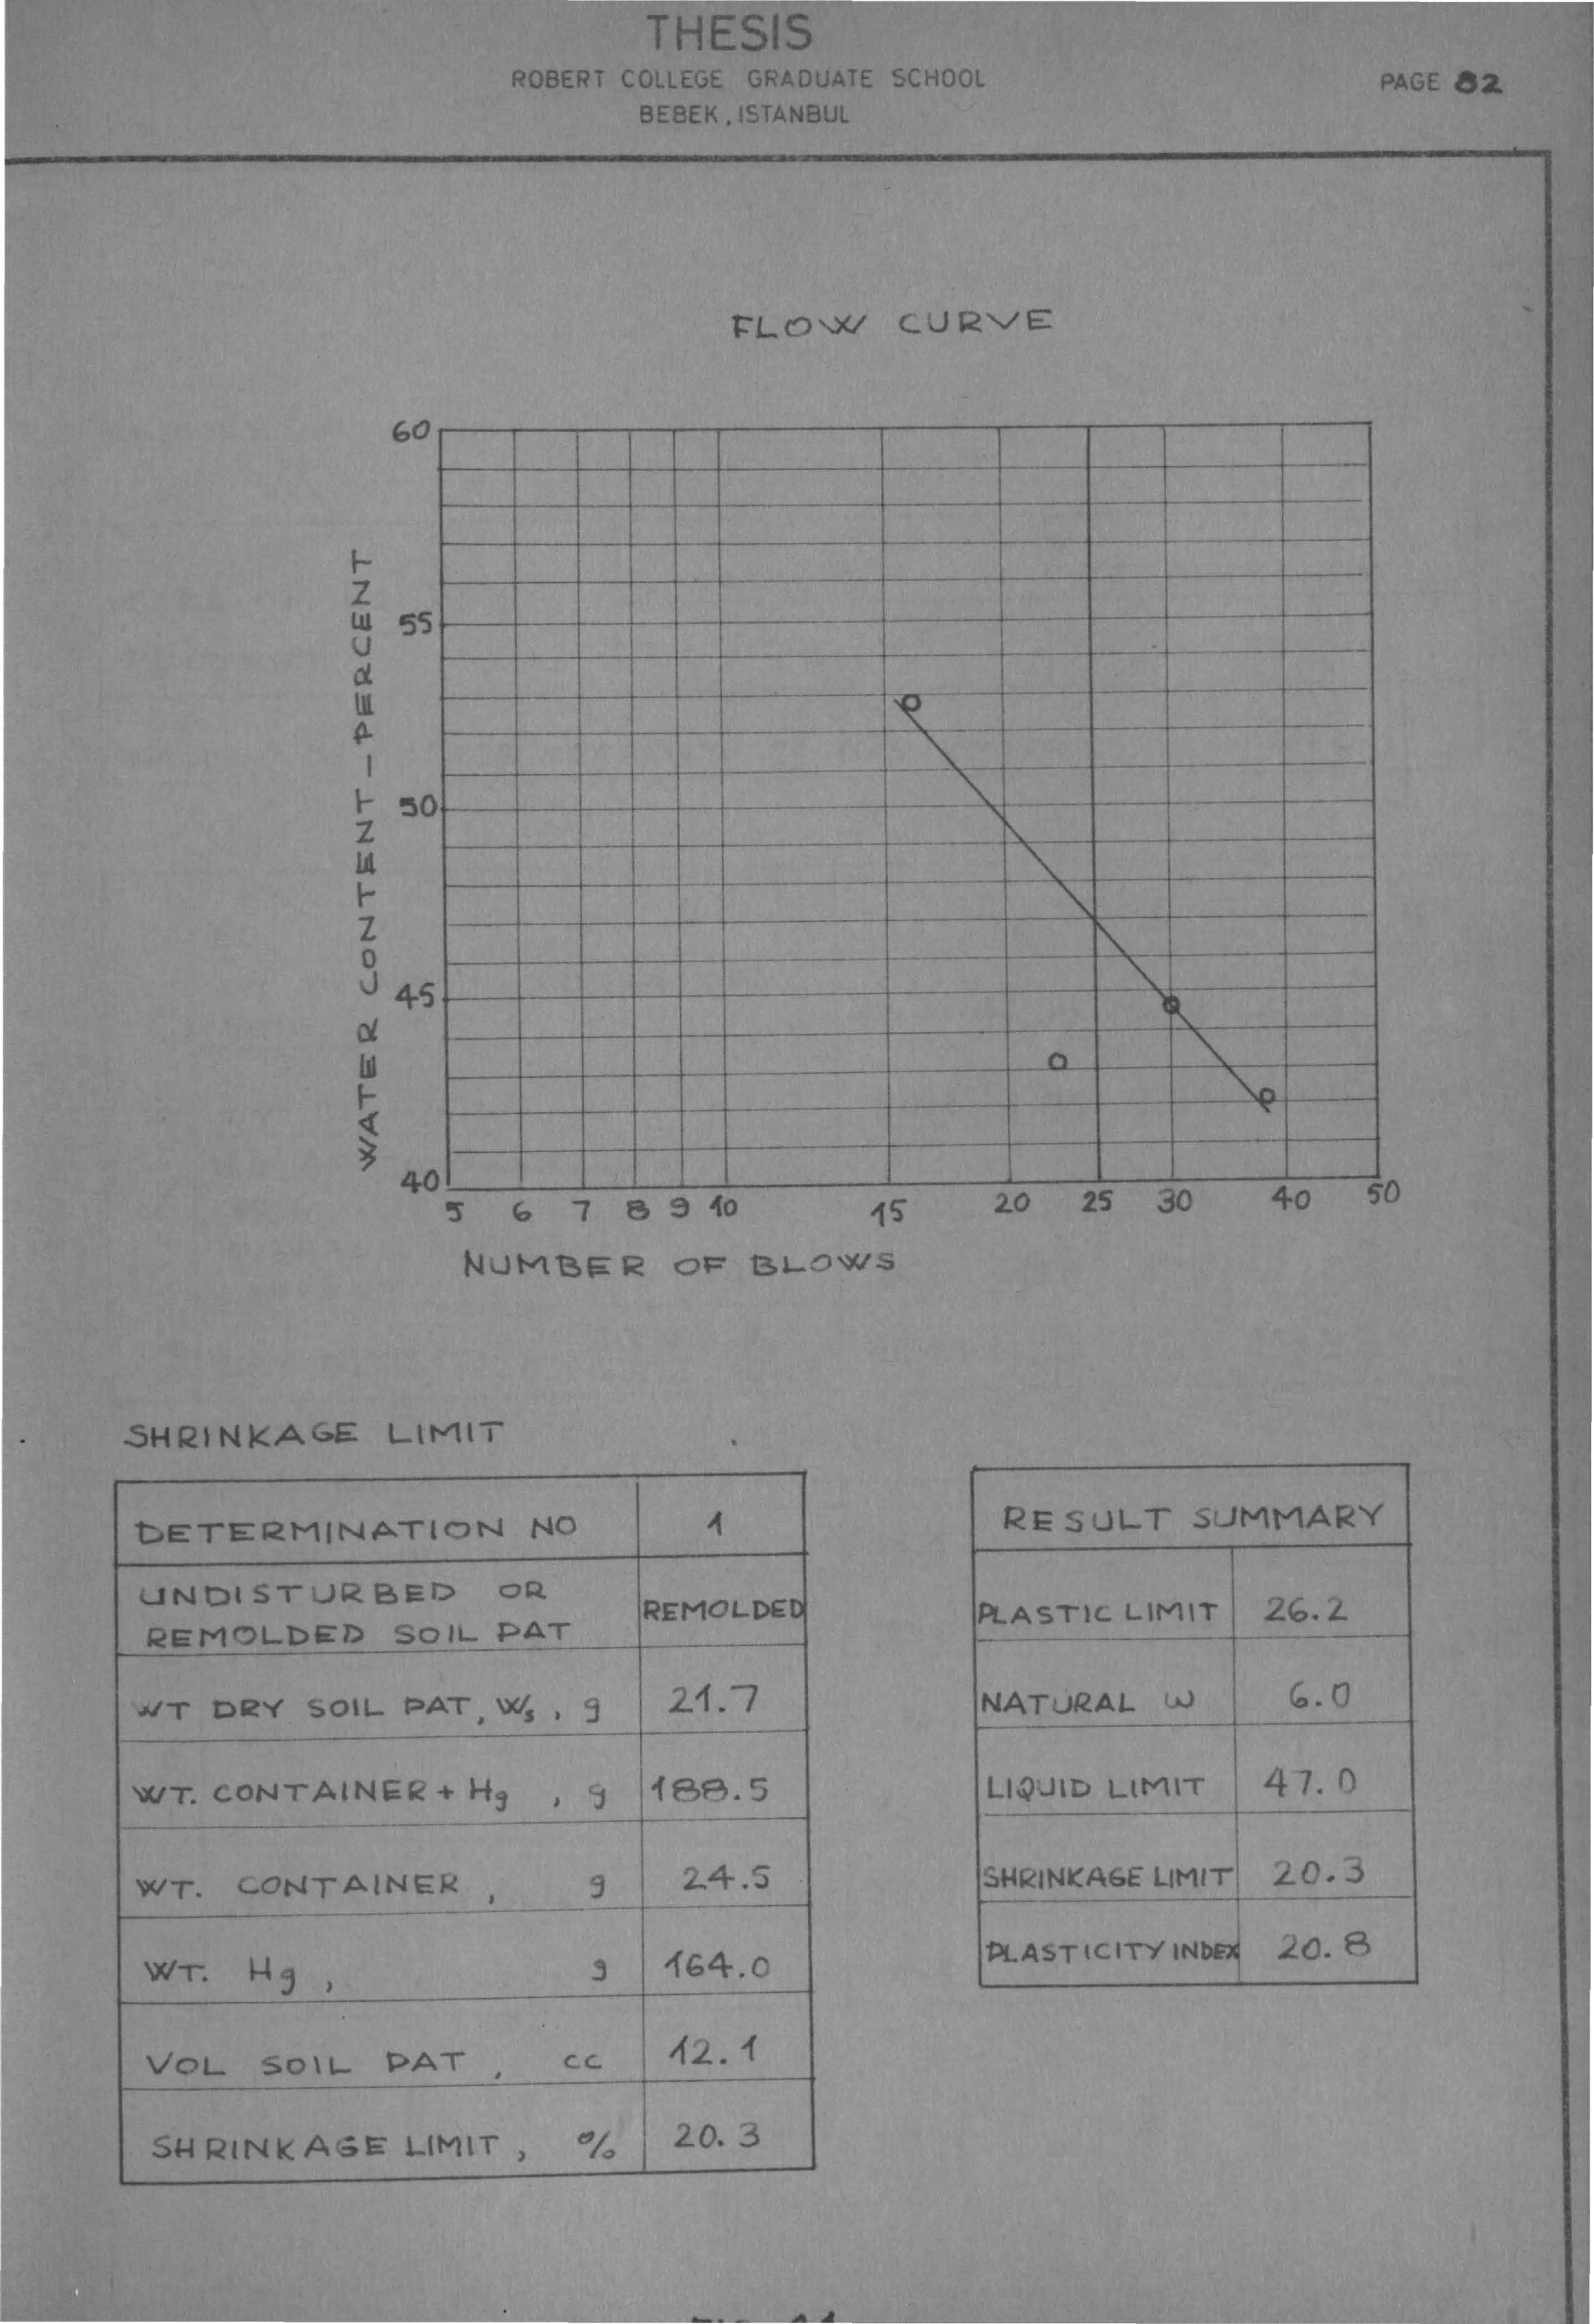 THESIS
ROBERT COLLEGE GRADUATE SCHOOL
BEBEK, ISTANBUL
PAGE 82
FLOW CURVE
WATER CONTENT-PERCENT
60
55
50
45
40
5 6 7 8 9 10 15 20 25 30 40 50
NUMBER OF BLOWS
SHRINKAGE LIMIT
DETERMINATION NO 1
UNDISTURBED OR
REMOLDED SOIL PAT REMOLDED
WT DRY SOIL PAT, Ws, g 21.7
WT. CONTAINER + Hg , g 188.5
WT. CONTAINER , g 24.5
WT. Hg , g 164.0
VOL SOIL PAT , cc 12.1
SHRINKAGE LIMIT , % 20.3
RESULT SUMMARY
PLASTIC LIMIT 26.2
NATURAL ω 6.0
LIQUID LIMIT 47.0
SHRINKAGE LIMIT 20.3
PLASTICITY INDEX 20.8